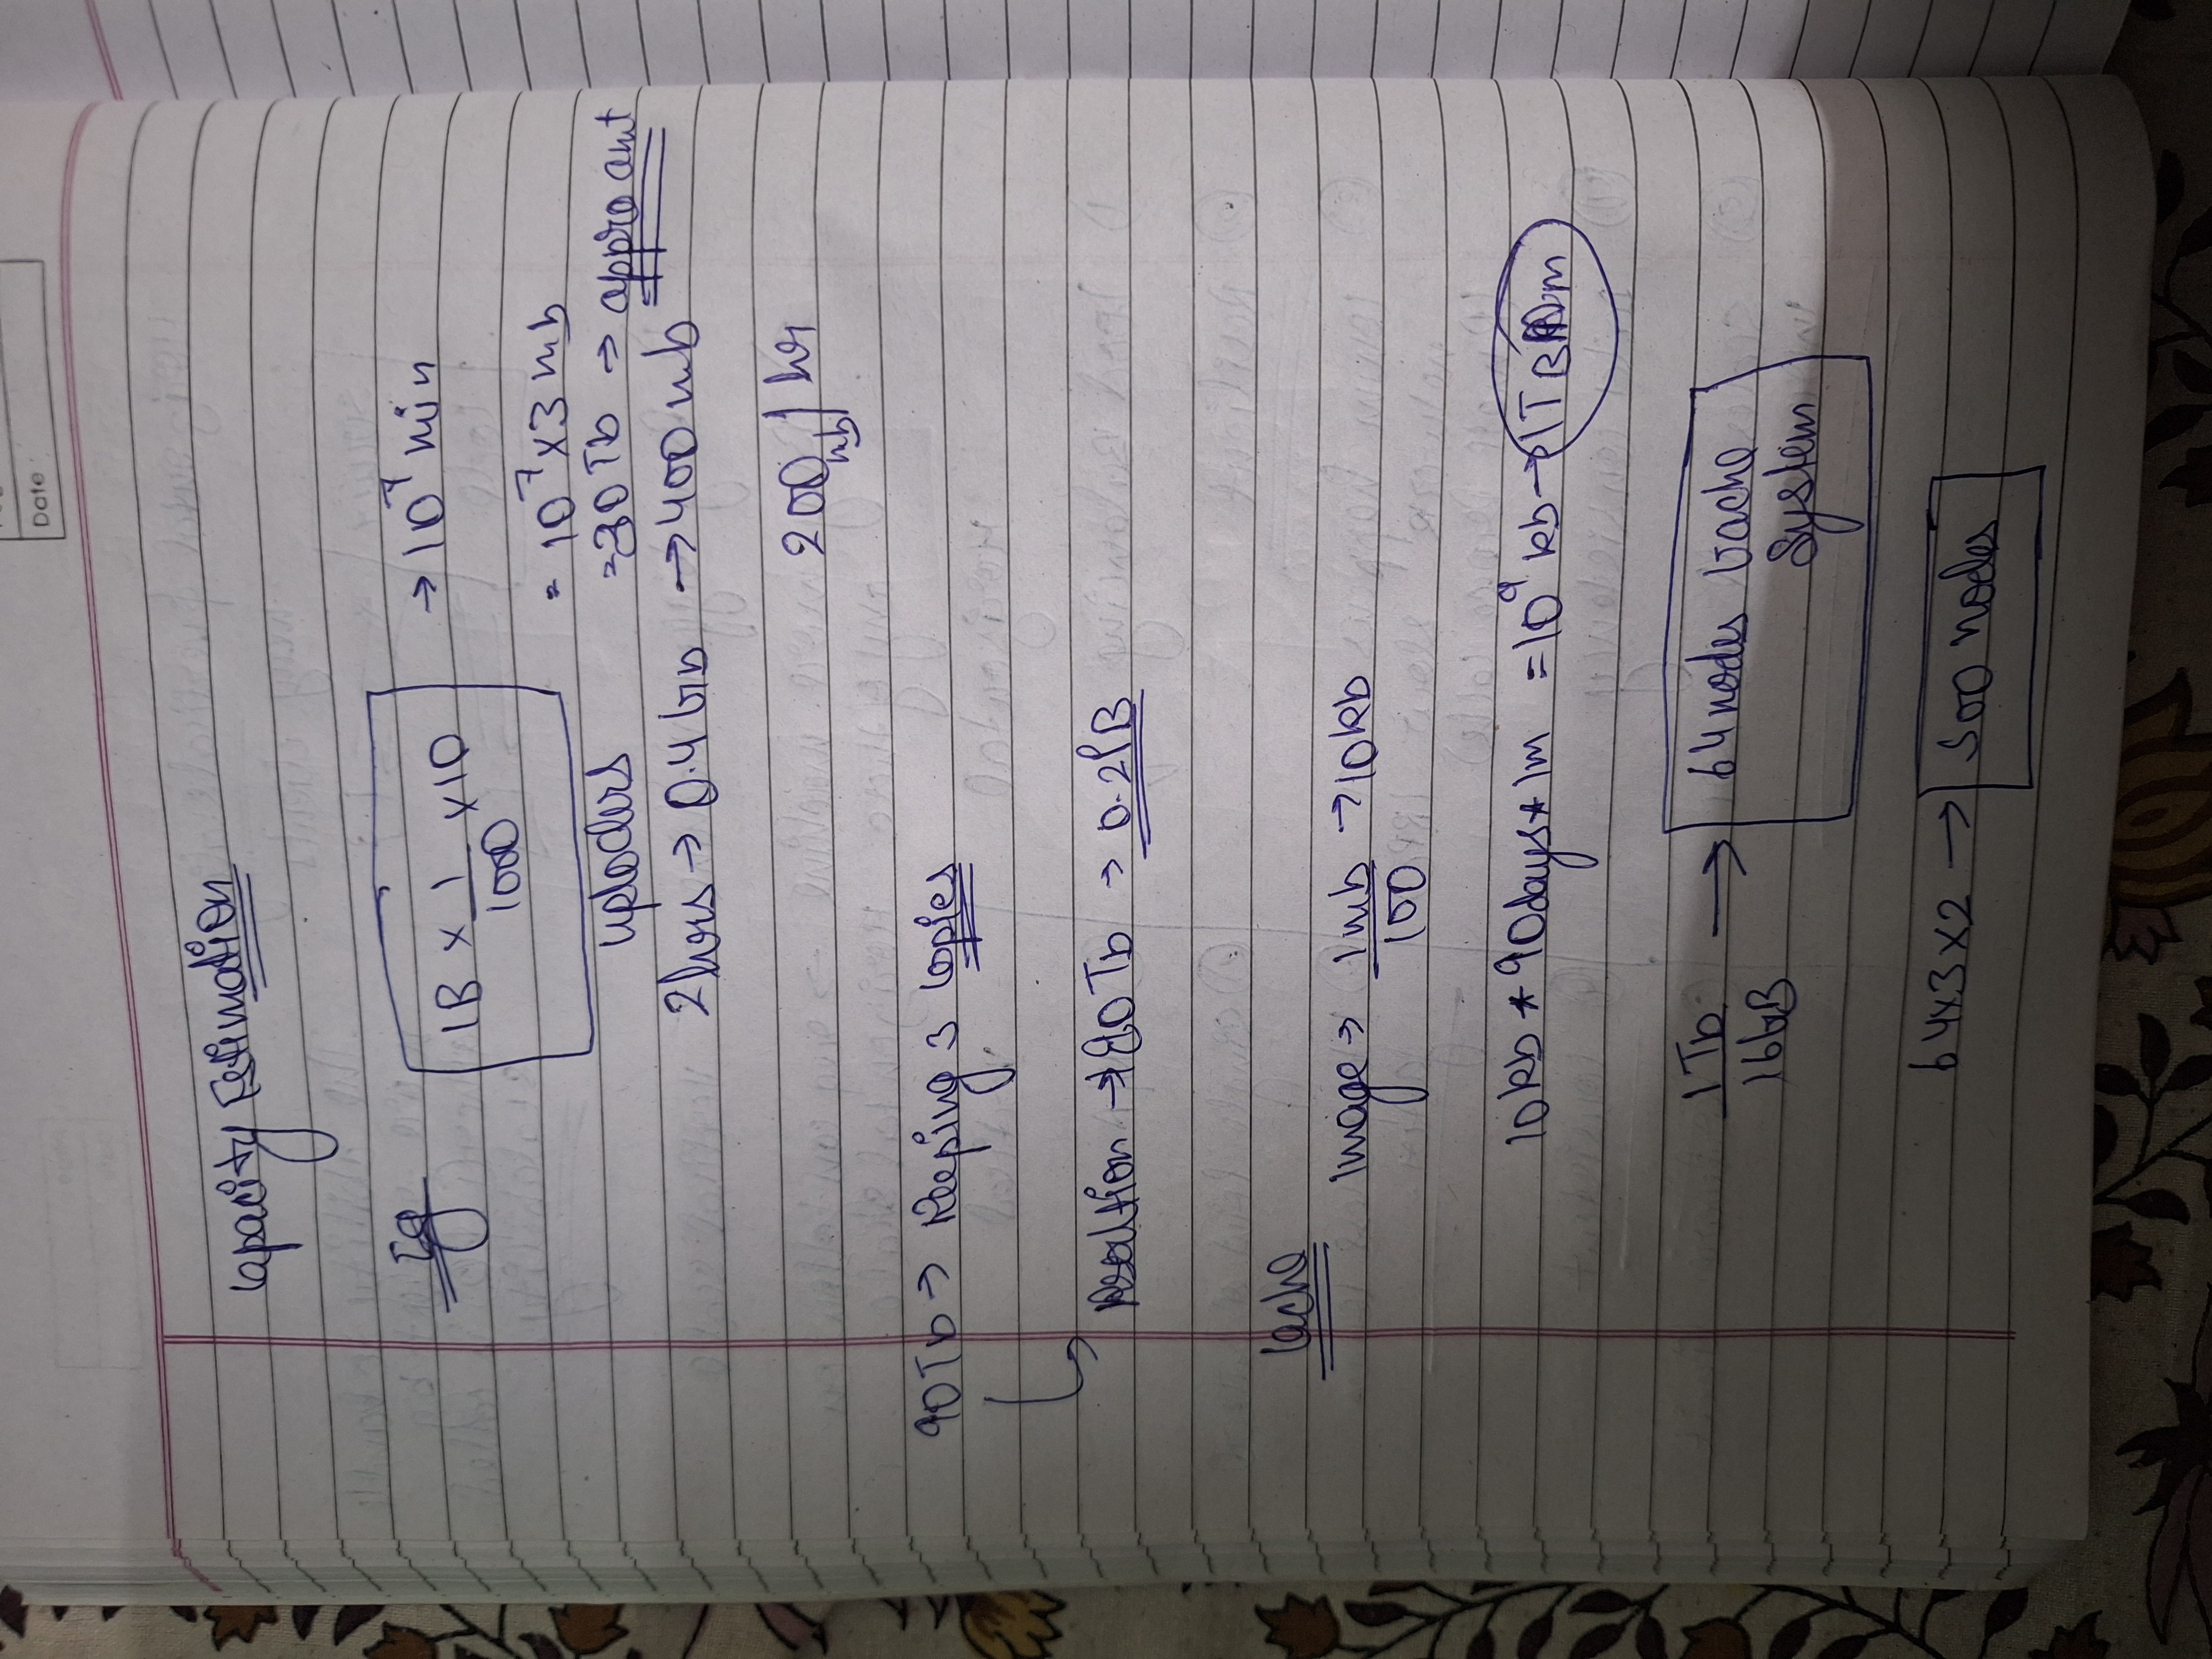 Date :
Capacity Estimation
Eg
1B × 1/1000 × 10 → 10⁷ min
= 10⁷ × 3 mb
uploders = 30 Tb → appro amt
2 hrs → 0.4 GB → 400 mb
200 mb / hr
90 Tb → Keeping 3 copies
→ 180 Tb → 0.2 PB
Cache
Image → 1 mb/100 → 10 kb
10 kb * 90 days * 1m = 10⁹ kb → 1 TB
1 Tb/16 GB → 64 nodes Cache
System
64 × 3 × 2 → 500 nodes